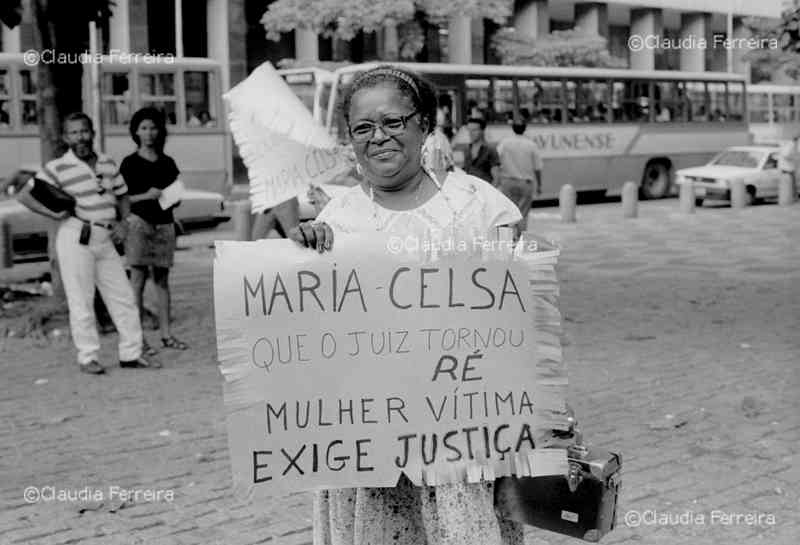 ©Claudia Ferreire
©Claudia Ferreire
MIRA CELSA
VUNENSE
©Claudia Ferreire
MARIA-CELSA
QUE O JUIZ TORNOU
RÉ
MULHER VÍTIMA
EXIGE JUSTIÇA
©Claudia Ferreira
©Claudia Ferreira